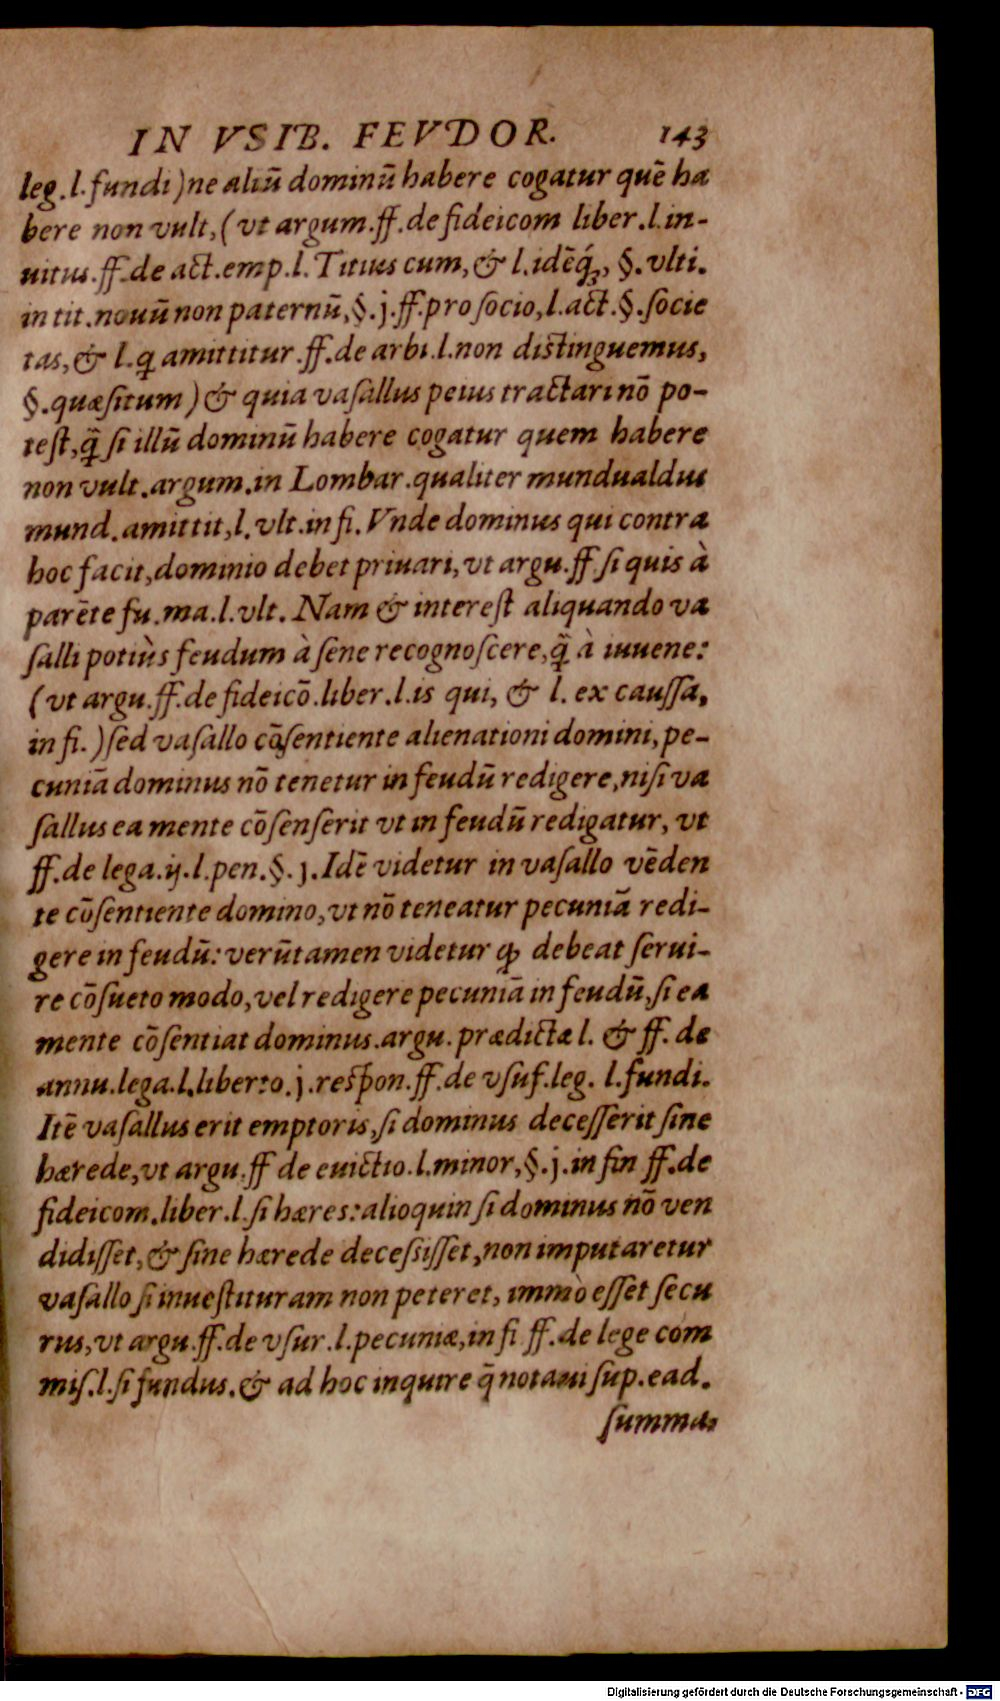 IN VSIB. FEVDOR. 143
leg.l.fundi)ne aliū dominū habere cogatur quē ha
bere non vult,(vt argum.ff.de fideicom liber.l.in-
uitus.ff.de act.emp.l.Titius cum,& l.idēq́;, §.vlti.
in tit.nouū non paternū,§.j.ff.pro socio,l.act.§.socie
tas,& l.q amittitur.ff.de arbi.l.non distinguemus,
§.quæsitum)& quia vasallus peius tractari nō po-
test,q̃ si illū dominū habere cogatur quem habere
non vult.argum.in Lombar.qualiter mundualdus
mund.amittit,l.vlt.in fi.Vnde dominus qui contra
hoc facit,dominio debet priuari,vt argu.ff.si quis à
parēte fu.ma.l.vlt. Nam & interest aliquando va
salli potiùs feudum à sene recognoscere,q̃ à iuuene:
(vt argu.ff.de fideicō.liber.l.is qui, & l. ex caussa,
in fi.)sed vasallo cōsentiente alienationi domini,pe-
cuniā dominus nō tenetur in feudū redigere,nisi va
sallus ea mente cōsenserit vt in feudū redigatur, vt
ff.de lega.ij.l.pen.§.j.Idē videtur in vasallo vēden
te cōsentiente domino,vt nō teneatur pecuniā redi-
gere in feudū:verūtamen videtur ꝙ debeat serui-
re cōsueto modo,vel redigere pecuniā in feudū,si ea
mente cōsentiat dominus.argu.prædictæ l. & ff. de
annu.lega.l.liberto.j.respon.ff.de vsuf.leg. l.fundi.
Itē vasallus erit emptoris,si dominus decesserit sine
hærede,vt argu.ff de euictio.l.minor,§.j.in fin ff.de
fideicom.liber.l.si hæres:alioquin si dominus nō ven
didisset,& sine hærede decessisset,non imputaretur
vasallo si inuestituram non peteret, immò esset secu
rus,vt argu.ff.de vsur.l.pecuniæ,in fi ff.de lege com
mis.l.si fundus.& ad hoc inquire q̄ notaui sup.ead.
summa,
Digitalisierung gefördert durch die Deutsche Forschungsgemeinschaft - DFG